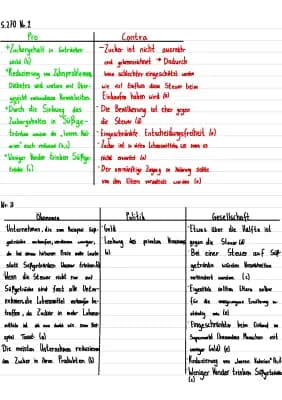 S.270 Nr. 2
Pro
+ Zuckergehalt in Getränken
sinkt (b)
+ Reduzierung von Zahnproblemen,
Diabetes und weitere mit Über-
gewicht verbundenen Krankheiten
+ Durch die Senkung des
Zuckergehaltes in Süßge-
tränken werden die „leeren Kalo-
rien" auch reduziert (b,c)
+ Weniger Kinder trinken Süßge-
tränke (c)
Contra
- Zucker ist nicht ausreich-
end gekennzeichnet → Dadurch
kann schlechter eingeschätzt werden
wie viel Einfluss diese Steuer beim
Einkaufen haben wird (b)
- Die Bevölkerung ist eher gegen
die Steuer (d)
- Eingeschränkte Entscheidungsfreiheit (e)
- Zucker ist in vielen Lebensmitteln, wo man es
nicht erwartet (e)
- Der vernünftige Zugang zu Nahrung sollte
von den Eltern vermittelt werden (e)
Nr. 3
Ökonomie
Unternehmen, die zum Beispiel Süß-
getränke verkaufen, verdienen weniger,
da bei einem höheren Preis mehr Leute
statt Süßgetränken Wasser trinken
Wenn die Steuer nicht nur auf
Süßgetränke sind fast alle Unter-
nehmen, die Lebensmittel verkaufen be-
troffen, da Zucker in mehr Lebens-
mitteln ist als man denkt wie zum Bei-
spiel Toast (e)
Die meisten Unternehmen reduzieren
den Zucker in ihren Produkten (b)
Politik
Geld
Lenkung des privaten Konsums
Gesellschaft
Etwas über die Hälfte ist
gegen die Steuer (d)
Bei einer Steuer auf Süß-
getränke werden Krankheiten
verhindert werden (c)
Eigentlich sollten Eltern selber
für die ausgewogene Ernährung zu-
ständig sein (e)
Eingeschränkter beim Einkauf im
Supermarkt (besonders Menschen mit
weniger Geld) (e)
Reduzierung von „leeren Kalorien"
Weniger Kinder trinken Süßgetränke
(c)